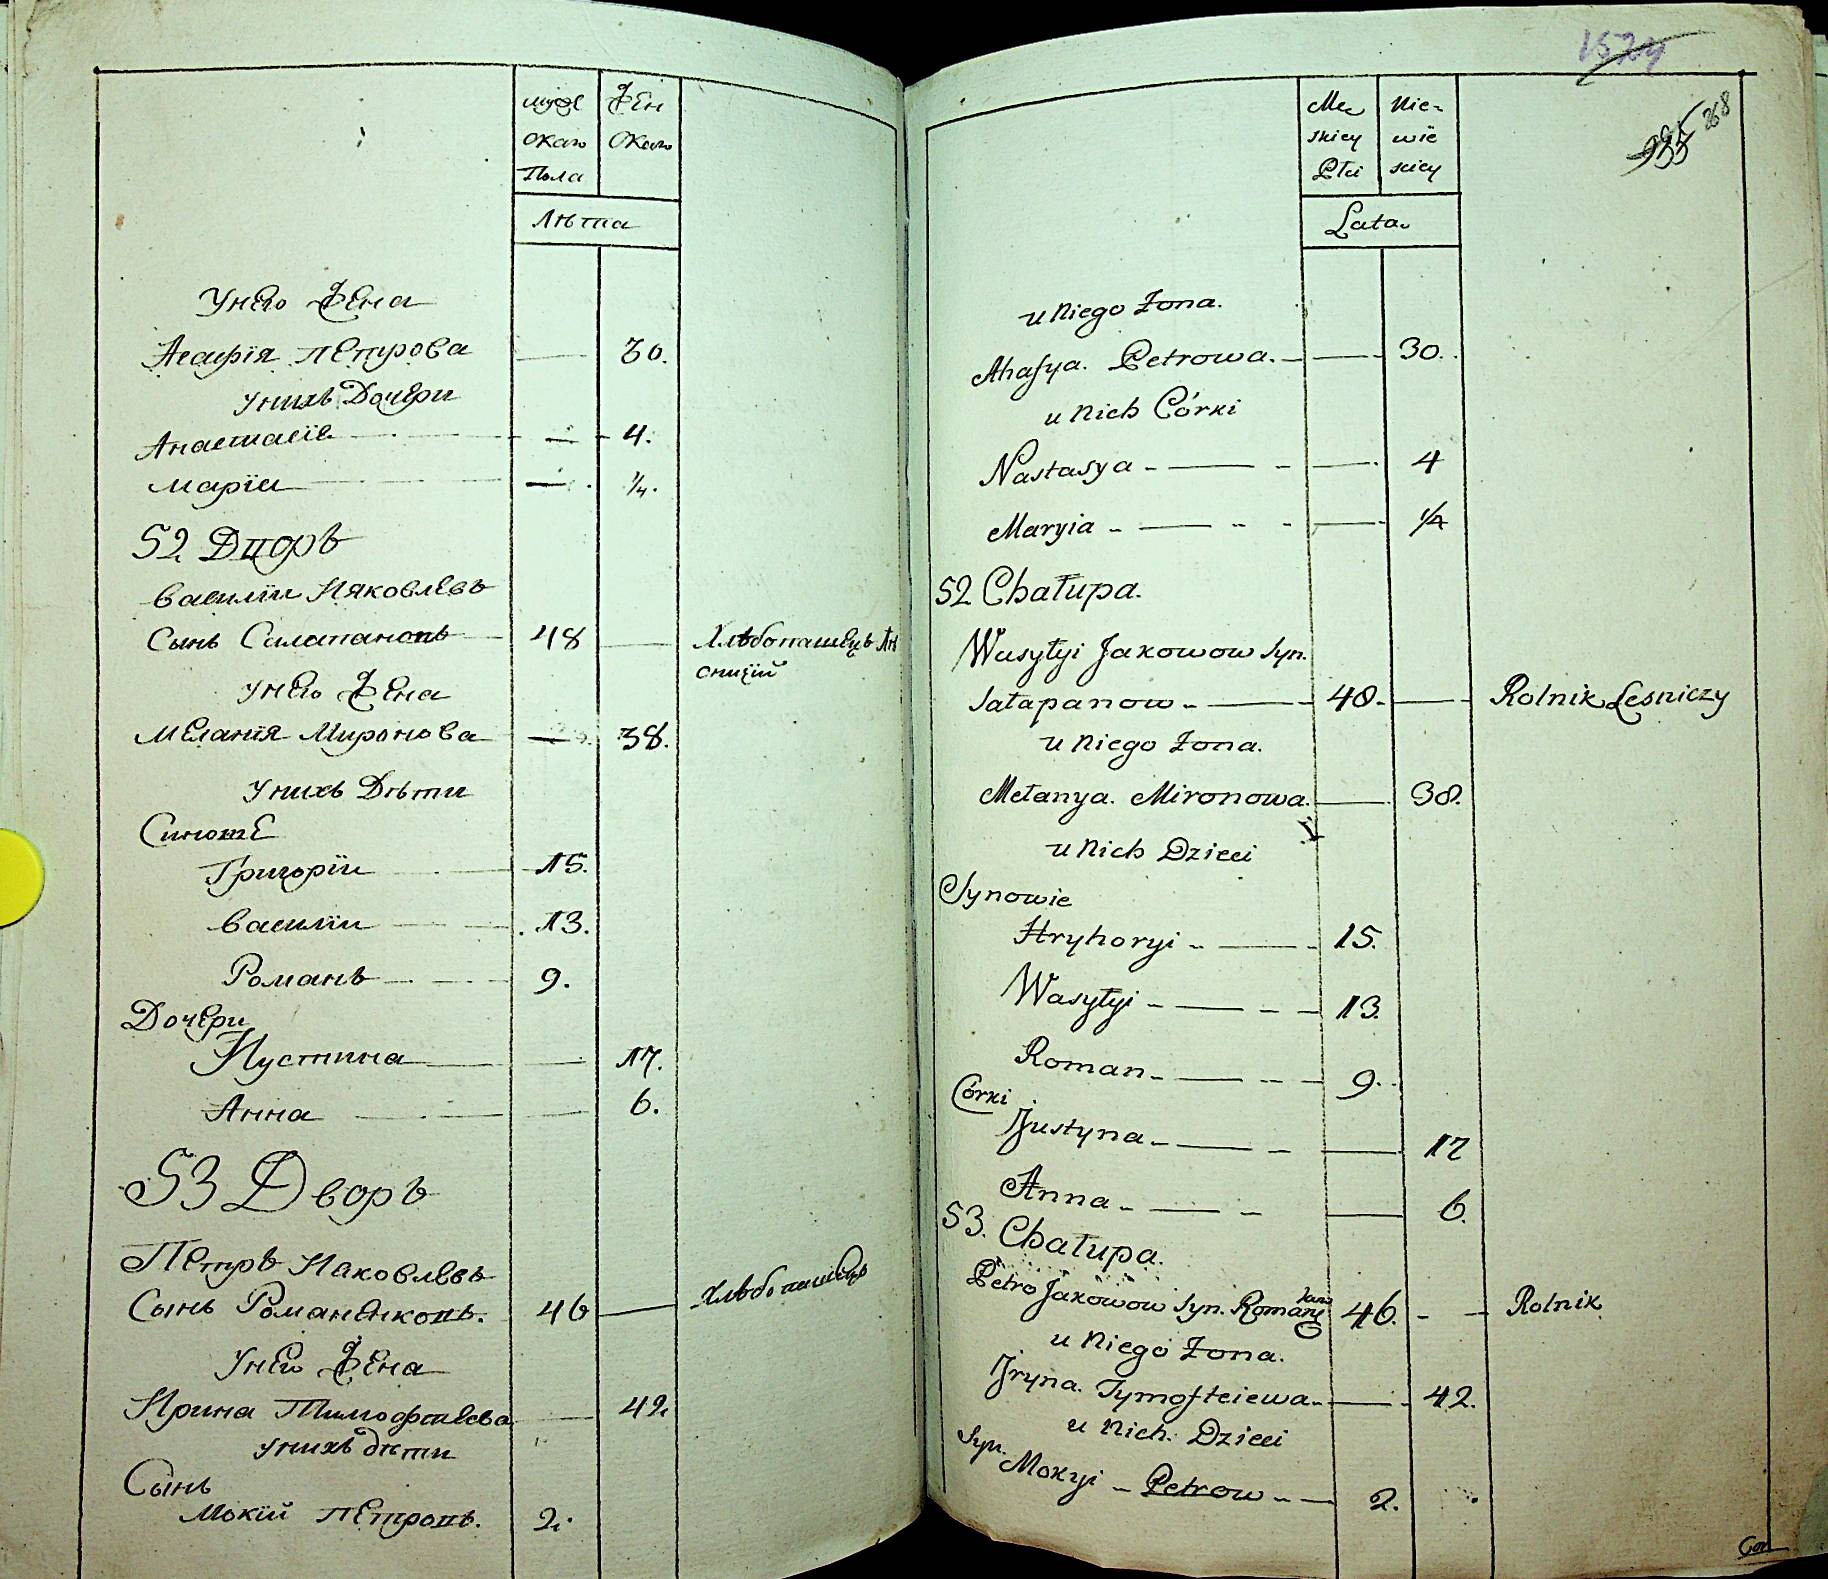 муже
скаго
Пола
жен
скаго
Лѣта
Унего жена
Агафія Петрова — 30.
Унихъ Дочери
Анастасія — — 4.
Марія — — ¼.
52 Дворъ
Василіи Ияковлевъ
Сынъ Салапановъ — 48 — Хлѣбопашецъ Лѣ
сничій
Унего жена
Меланія Миронова — 38.
Унихъ Дѣти
Синове
Григоріи — 15.
Василіи — 13.
Романъ — 9.
Дочери
Иустина — — 17.
Анна — — 6.
53 Дворъ
Петръ Иаковлевъ
Сынъ Романенковъ. 46 — Хлѣбопашецъ
Унего жена
Ирина Тимофтеева — 42
Унихъ дѣти
Сынъ
Мокій Петровъ. 2.
1574
935 268
Mę
skiey
Płci
Nie-
wie
sciey
Lata.
u Niego Żona.
Ahafya. Petrowa. — — 30.
u Nich Córki
Nastasya - — - — 4
Maryia - — - - — ¼
52 Chałupa.
Wasyłyi Jakowow Syn.
Sałapanow - — 48. — Rolnik Lesniczy
u Niego Żona.
Mełanya. Mironowa. — 38.
u Nich Dzieci
Synowie
Hryhoryi - — - 15.
Wasyłyi - — - - 13.
Roman - — - - 9.
Córki
Justyna - — - — 17
Anna - — - — 6.
53. Chałupa.
Petro Jakowow Syn. Romany 46. - - Rolnik
u Niego Żona.
Jryna. Tymofteiewa. — 42.
u Nich. Dzieci
Syn.
Mokyi - Petrow - - 2.